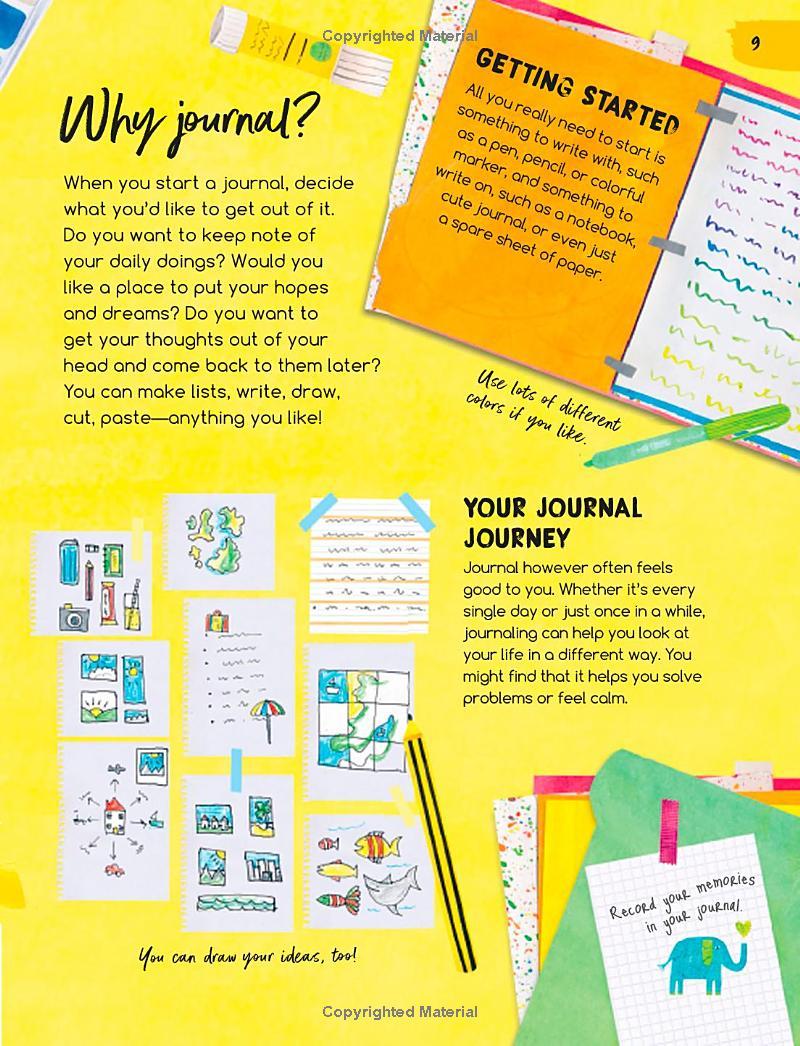 Copyrighted Material
9
Why journal?
When you start a journal, decide
what you'd like to get out of it.
Do you want to keep note of
your daily doings? Would you
like a place to put your hopes
and dreams? Do you want to
get your thoughts out of your
head and come back to them later?
You can make lists, write, draw,
cut, paste—anything you like!
GETTING STARTED
All you really need to start is
something to write with, such
as a pen, pencil, or colorful
marker, and something to
write on, such as a notebook,
cute journal, or even just
a spare sheet of paper.
Use lots of different
colors if you like.
YOUR JOURNAL
JOURNEY
Journal however often feels
good to you. Whether it's every
single day or just once in a while,
journaling can help you look at
your life in a different way. You
might find that it helps you solve
problems or feel calm.
You can draw your ideas, too!
Record your memories
in your journal.
Copyrighted Material